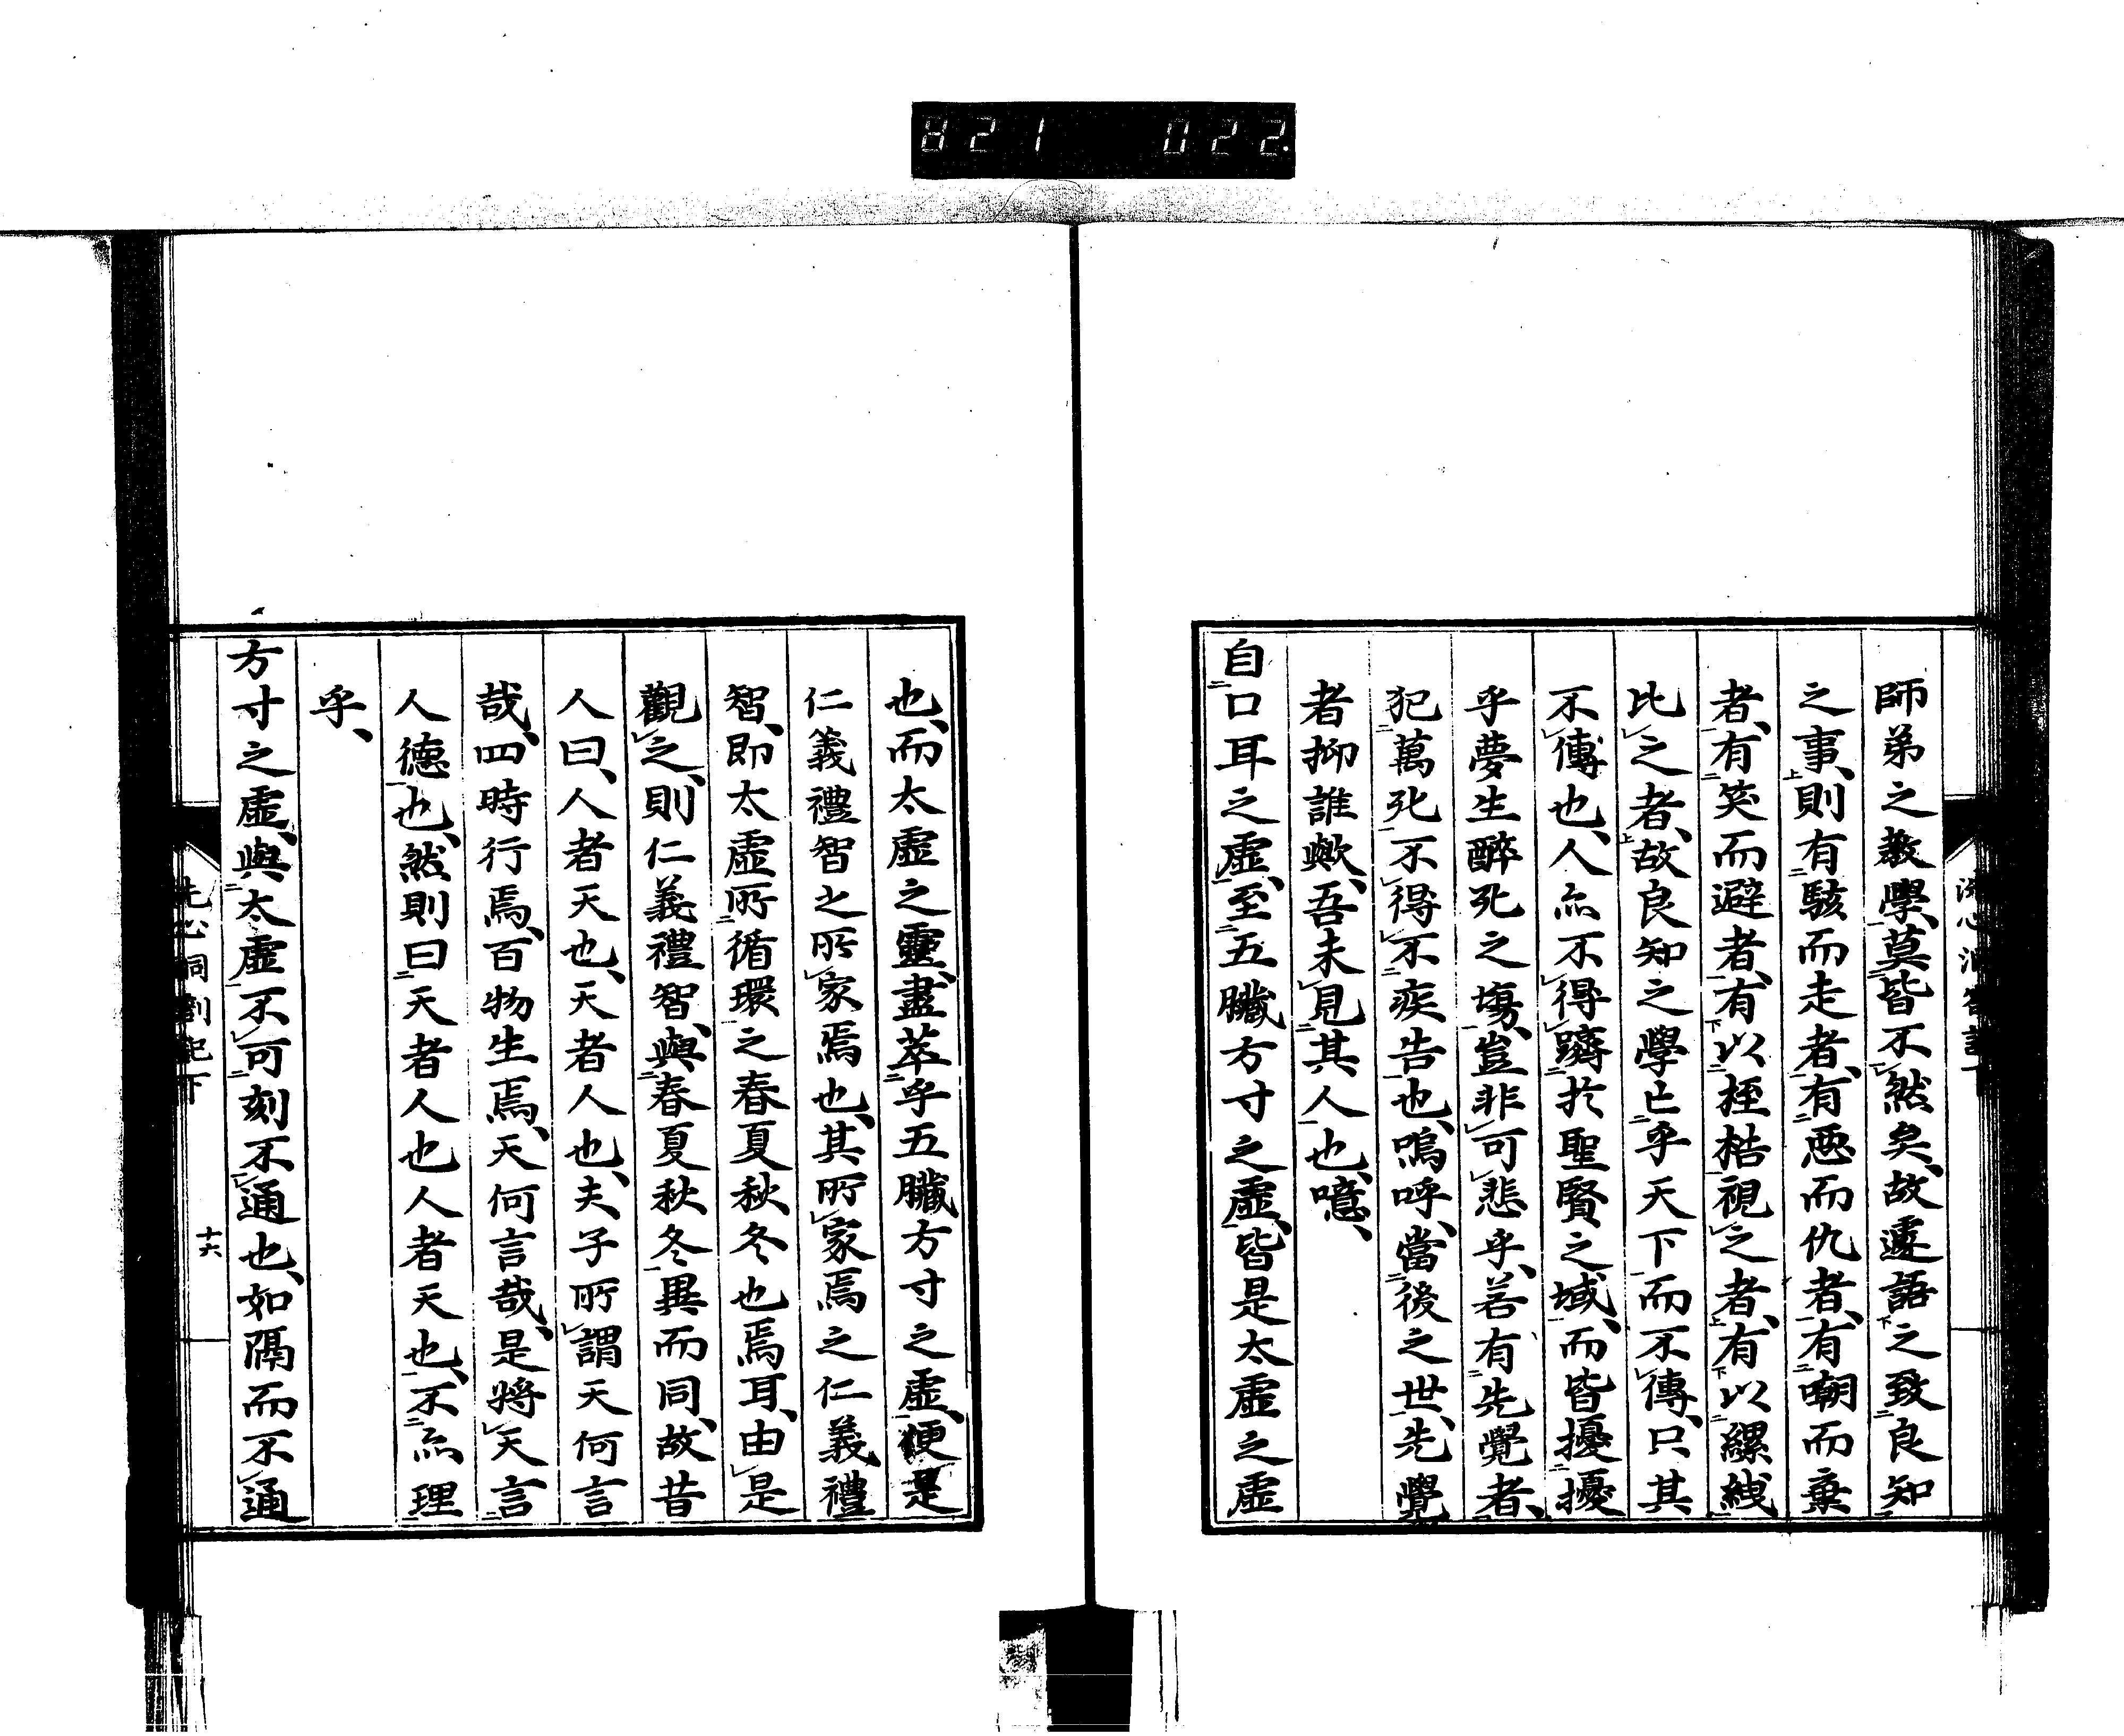 821 022
師弟之教學、莫皆不然矣、故遽語之致良知
之事、則有駭而走者、有惡而仇者、有嘲而棄
者、有笑而避者、有以桎梏視之者、有以縲絏
比之者、故良知之學亡乎天下而不傳、只其
不傳也、人亦不得躋於聖賢之域、而皆擾擾
乎夢生醉死之塲、豈非可悲乎、若有先覺者、
犯萬死不得不疾告也、嗚呼、當後之世、先覺
者抑誰歟、吾未見其人也、噫、
自口耳之虛、至五臟方寸之虛、皆是太虛之虛
也、而太虛之靈、盡萃乎五臟方寸之虛、便是
仁義禮智之所家焉也、其所家焉之仁義禮
智、即太虛所循環之春夏秋冬也焉耳、由是
觀之、則仁義禮智、與春夏秋冬異而同、故昔
人曰、人者天也、天者人也、夫子所謂天何言
哉、四時行焉、百物生焉、天何言哉、是將天言
人德也、然則曰天者人也人者天也、不亦理
乎、
方寸之虛、與太虛不可刻不通也、如隔而不通
洗心洞劄記下
十六